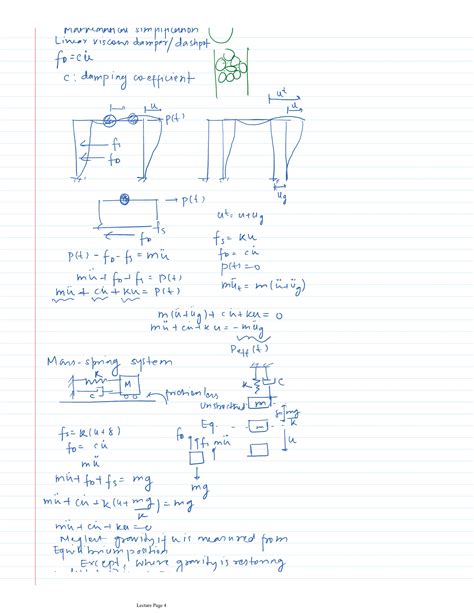 Mathematical simplification
Linear viscous damper/dashpot
f_D = cu̇
c : damping coefficient
u
p(t)
f_s
f_D
uᵗ
u
u_g
p(t)
f_s
f_D
uᵗ = u+u_g
f_s = ku
f_D = cu̇
p(t)=0
mü_t = m(ü+ü_g)
p(t) - f_D - f_s = mü
mü + f_D + f_s = p(t)
mü + cu̇ + ku = p(t)
m(ü+ü_g) + cu̇ + ku = 0
mü + cu̇ + ku = -mü_g
P_eff(t)
Mass-spring system
k
c
M
frictionless
k
c
Unstretched
m
Eq.
m
δ = mg/k
u
f_s = k(u+δ)
f_D = cu̇
mü
f_D
f_s
mü
mg
mü + f_D + f_s = mg
mü + cu̇ + k(u + mg/k) = mg
mü + cu̇ + ku = 0
Neglect gravity if u is measured from
Equilibrium position
Except, where gravity is restoring
Lecture Page 4